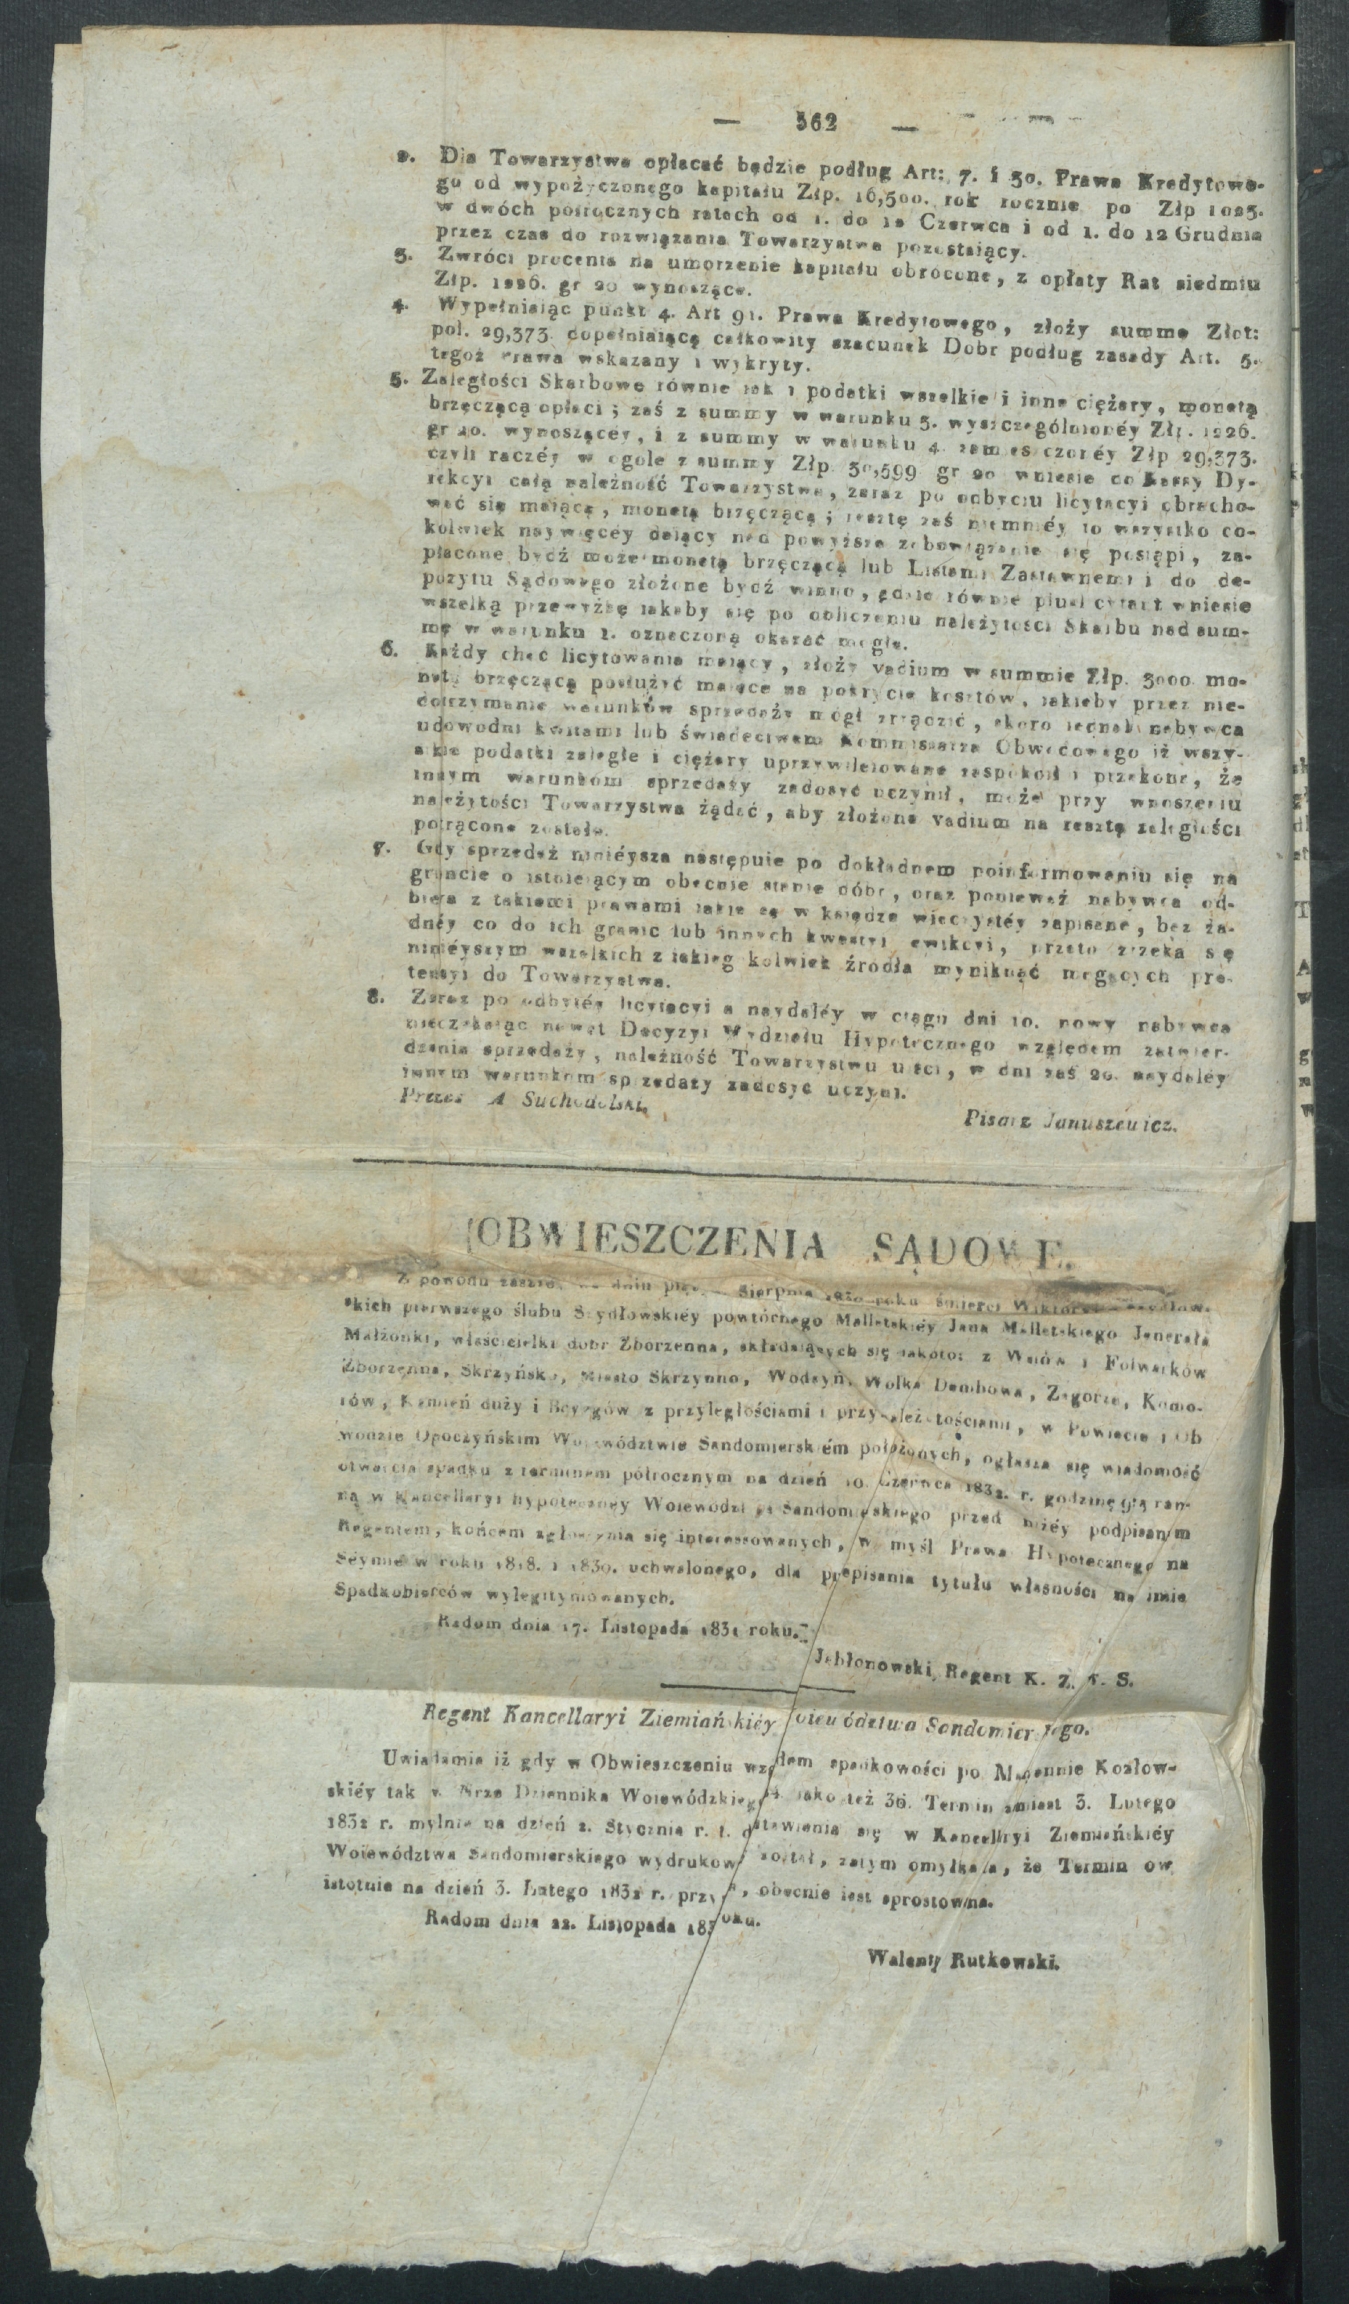 — 562 —
2. Dla Towarzystwa opłacać będzie podług Art: 7. i 30. Prawa Kredytowe-
go od wypożyczonego kapitału Złp. 16,500. rok rocznie po Złp
w dwóch półrocznych ratach od 1. do 12 Czerwca i od 1. do 12 Grudnia
przez czas do rozwiązania Towarzystwa pozostaiący.
3. Zwróci procenta na umorzenie kapitału obrócone, z opłaty Rat siedmiu
Złp. 1226. gr 20 wynoszące.
4. Wypełniaiąc punkt 4. Art 91. Prawa Kredytowego, złoży summę Złot:
pol. 29,373 dopełniaiącą całkowity szacunek Dobr podług zasady Art. 5.
tegoż Prawa wskazany i wykryty.
5. Zaległości Skarbowe równie iak i podatki wszelkie i inne ciężary, monetą
brzęczącą opłaci; zaś z summy w warunku 3. wyszczególnionéy Złp. 1226.
gr 20. wynoszącéy, i z summy w warunku 4. zamieszczonéy Złp 29,373.
czyli raczéy w ogole z summy Złp 30,599 gr 20 wniesie do Kassy Dy-
rekcyi całą należność Towarzystwa, zaraz po odbyciu licytacyi obracho-
wać się maiącą, monetą brzęczącą; resztę zaś niemniéy to wszystko co-
kolwiek naywięcéy daiący nad powyższe zobowiązanie się postąpi, za-
płacone bydź może monetą brzęczącą lub Listami Zastawnemi i do de-
pozytu Sądowego złożone bydź winno, gdzie równie plus licytant wniesie
wszelką przewyżkę iakaby się po obliczeniu należytości Skarbu nad sum-
mę w warunku 1. oznaczoną okazać mogła.
6. Każdy chęć licytowania maiący, złoży vadium w summie Złp. 3000 mo-
netą brzęczącą posłużyć maiące na pokrycie kosztów, iakieby przez nie-
dotrzymanie warunków sprzedaży mógł zrządzić, skoro iednak nabywca
udowodni kwitami lub świadectwem Kommissarza Obwodowego iż wszy-
stkie podatki zaległe i ciężary uprzywileiowane zaspokoił i przekona, że
innym warunkom sprzedaży zadosyć uczynił, może przy wnoszeniu
należytości Towarzystwa żądać, aby złożone vadium na resztę zaległości
potrącone zostało.
7. Gdy sprzedaż ninieysza następuie po dokładnem poinformowaniu się na
gruncie o istnieiącym obecnie stanie dóbr, oraz ponieważ nabywca od-
biera z takiemi prawami iakie są w księdze wieczystéy zapisane, bez ża-
dnéy co do ich granic lub innych kwestyi ewikcyi, przeto zrzeka się
ninieyszym wszelkich z iakieg kolwiek źródła wyniknąć mogących pre-
tensyi do Towarzystwa.
8. Zaraz po odbytéy licytacyi a naydaléy w ciągu dni 10. nowy nabywca
nieczekaiąc nawet Decyzyi Wydziału Hypotecznego względem zatwier-
dzenia sprzedaży, należność Towarzystwu uiści, w dni zaś 20. naydaléy
innym warunkom sprzedaży zadosyć uczyni.
Prezes A Suchodolski.
Pisarz Januszewicz.
OBWIESZCZENIA SĄDOWE.
Z powodu zaszłéy w dniu Sierpnia roku śmierci Wiktoryi
skich pierwszego ślubu Szydłowskiéy powtórnego Malletskiéy Jana Malletskiego Jenerała
Małżonki, właścicielki dobr Zborzenna, składaiących się iakoto: z Wsiów i Folwarków
Zborzenna, Skrzyńsko, Miasto Skrzynno, Wodzyń, Wolka Dembowa, Zagorze, Komo-
rów, Kamień duży i z przyległościami i przynależytościami, w Powiecie i Ob
wodzie Opoczyńskim Woiewództwie Sandomierskiém położonych, ogłasza się wiadomość
otwarcia spadku z terminem półrocznym na dzień 10. Czerwca 1832. r. godzinę 9tą ran-
ną w Kancellaryi hypoteczney Woiewództwa Sandomierskiego przed niżéy podpisanym
Regentem, końcem zgłoszenia się interessowanych, w myśl Prawa Hypotecznego na
Seymie w roku 1818. i 1830. uchwalonego, dla przepisania tytułu własności na imie
Spadkobierców wylegitymowanych.
Radom dnia 17. Listopada 1831 roku.
Jabłonowski, Regent K. Z. W. S.
Regent Kancellaryi Ziemiańskiéy Woiewództwa Sandomierskiego.
Uwiadamia iż gdy w Obwieszczeniu względem spadkowości po Maryannie Kozłow-
skiéy tak w Nrze Dziennika Woiewódzkiego iako też 36. Termin zamiast 3. Lutego
1832 r. mylnie na dzień 2. Stycznia r. t. stawienia się w Kancellryi Ziemiańskiéy
Woiewództwa Sandomierskiego wydrukowany został, zatym omyłka ta, że Termin ow
istotnie na dzień 3. Lutego 1832 r. , obecnie iest sprostowana.
Radom dnia 22. Listopada roku.
Walenty Rutkowski.